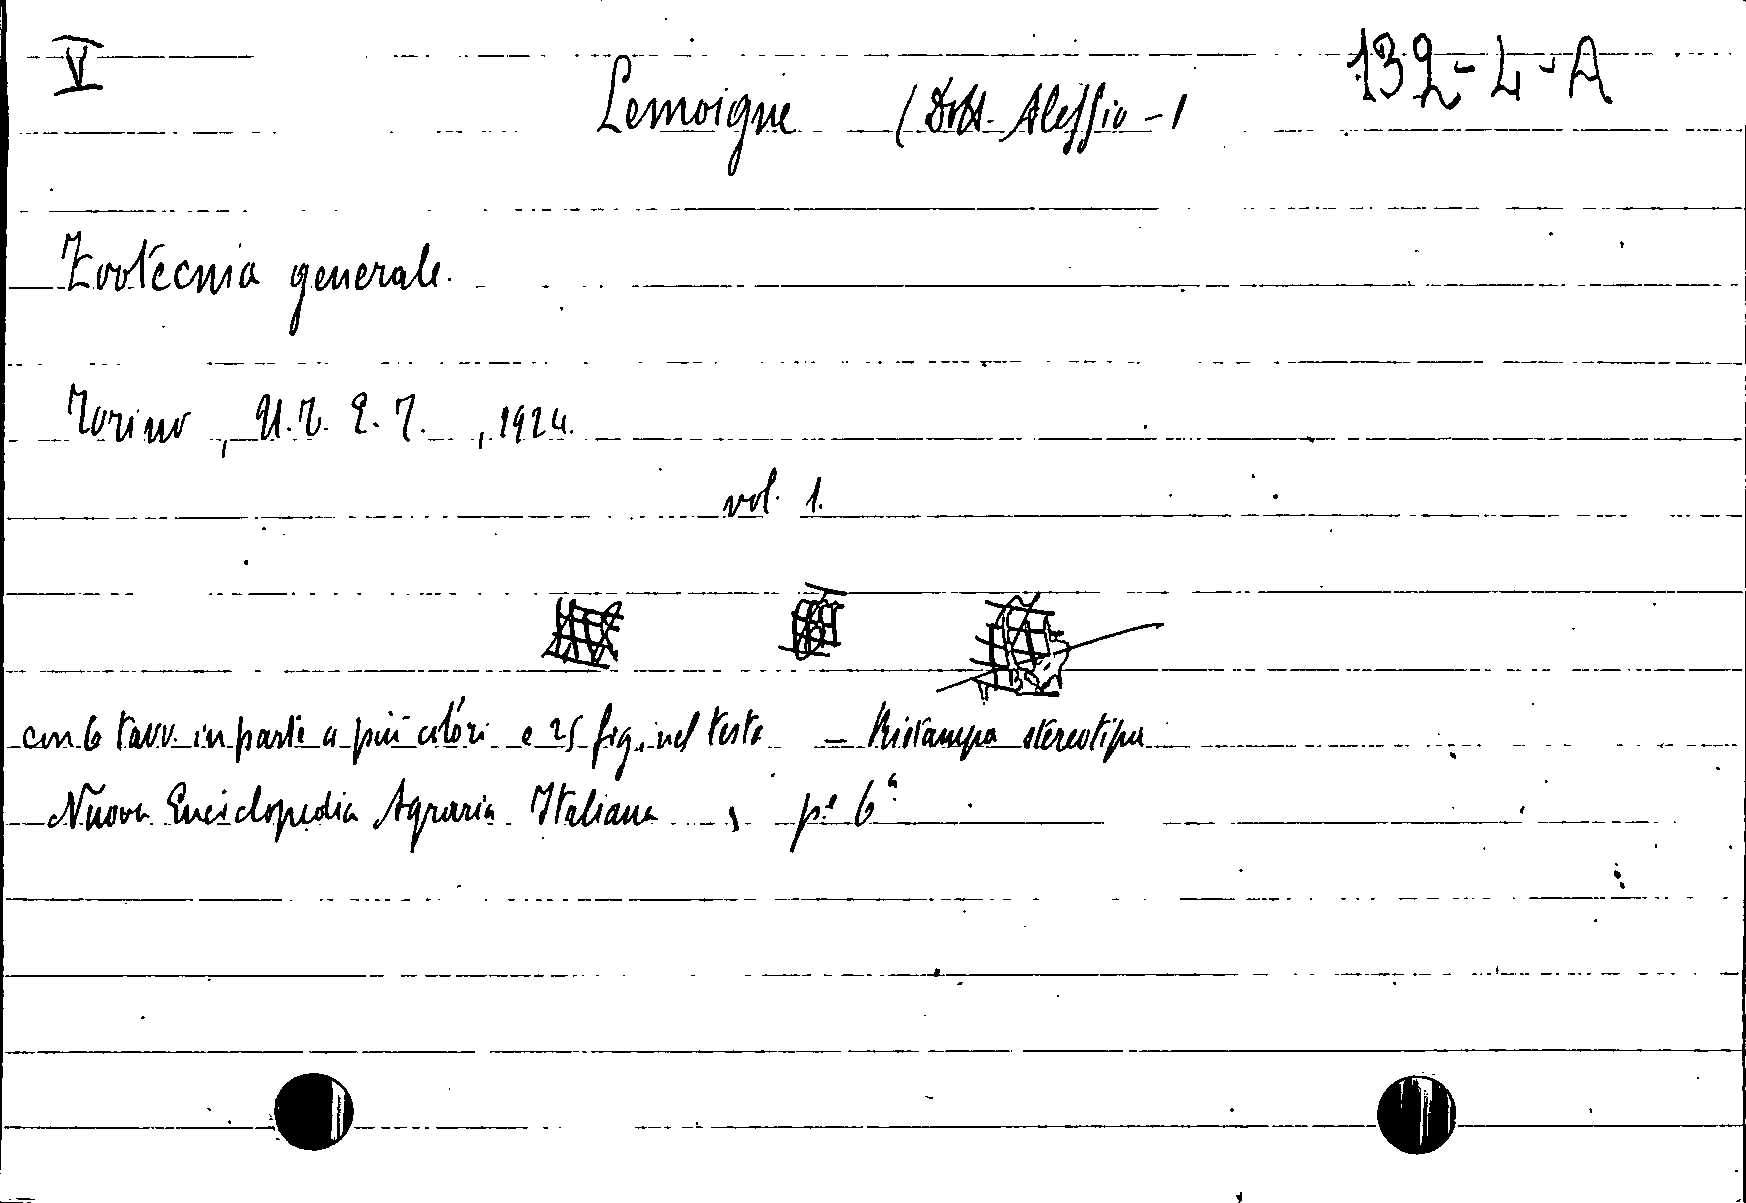 V
132-4-A
Lemoigne (Dott. Alessio-)
Zootecnia generale.
Torino, U.T.E.T., 1924.
vol. 1.
con 6 tavv. in parte a più colori e 25 fig. nel testo – Ristampa stereotipa
Nuova Enciclopedia Agraria Italiana, p.e 6a